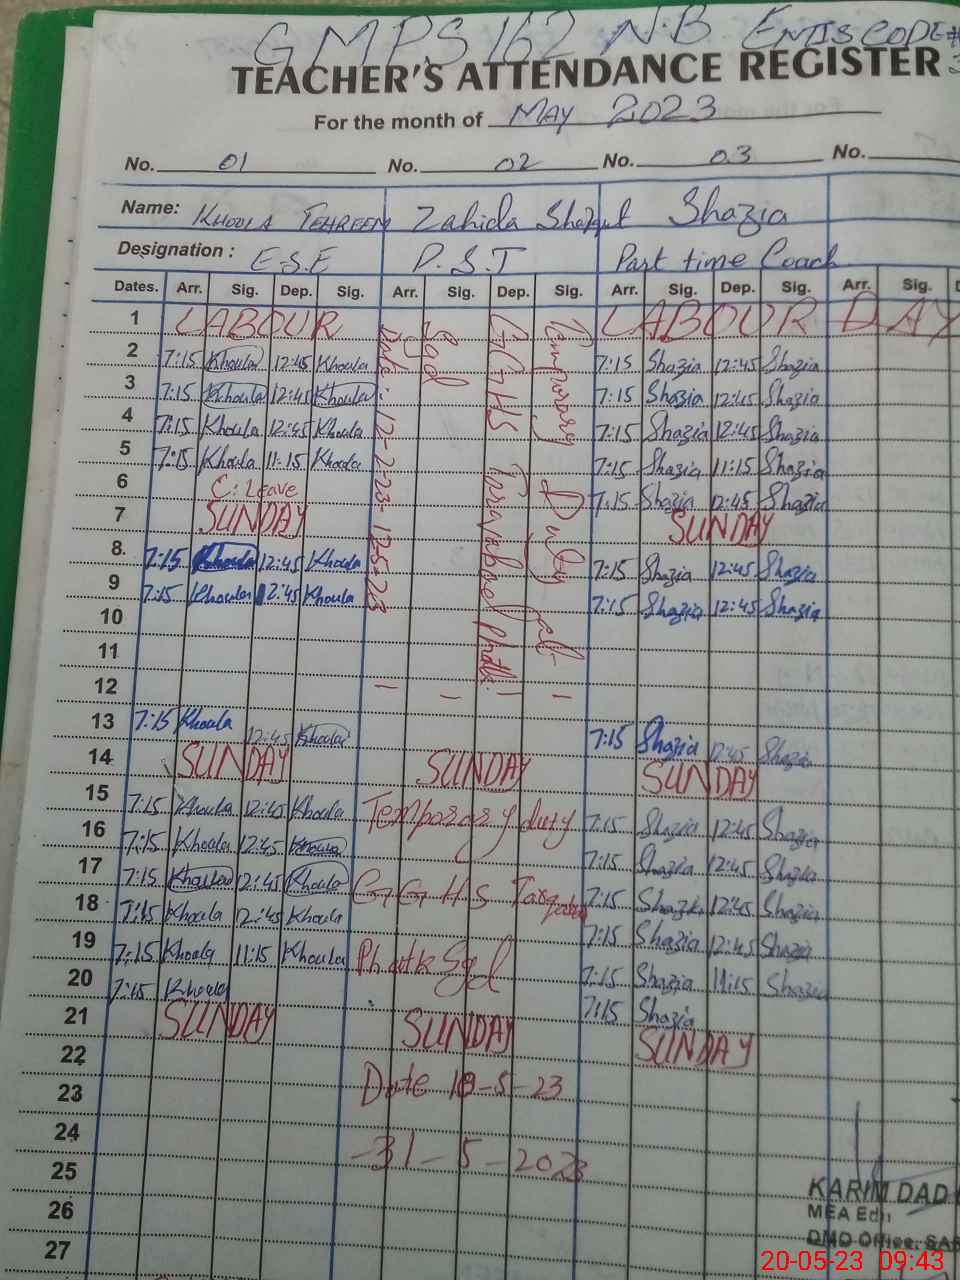 GMPS 162 N.B EMIS CODE #
TEACHER'S ATTENDANCE REGISTER
For the month of MAY 2023
No. 01 No. 02 No. 03 No.
Name: KHOOLA TEHREEM Zahida Shazia
Designation : E.S.E P.S.T Part time Coach
Dates. Arr. Sig. Dep. Sig. Arr. Sig. Dep. Sig. Arr. Sig. Dep. Sig. Arr. Sig.
1 LABOUR LABOUR DAY
2 7:15 Khoula 12:45 Khoula 7:15 Shazia 12:45 Shazia
3 7:15 Khoula 12:45 Khoula 7:15 Shazia 12:45 Shazia
4 7:15 Khoula 12:45 Khoula 7:15 Shazia 12:45 Shazia
5 7:15 Khoula 11:15 Khoula 7:15 Shazia 11:15 Shazia
6 C: Leave 7:15 Shazia 12:45 Shazia
7 SUNDAY SUNDAY
8. 7:15 Khoula 12:45 Khoula 7:15 Shazia 12:45 Shazia
9 7:15 Khoula 12:45 Khoula 7:15 Shazia 12:45 Shazia
10
11
12
Temporary Duty
GGHS
Sgd
Date:
13 7:15 Khoula 12:45 Khoula 7:15 Shazia 12:45 Shazia
14 SUNDAY SUNDAY SUNDAY
15 7:15 Khoula 12:45 Khoula Temporary duty 7:15 Shazia 12:45 Shazia
16 7:15 Khoula 12:45 Khoula 7:15 Shazia 12:45 Shazia
17 7:15 Khoula 12:45 Khoula GGHS 7:15 Shazia 12:45 Shazia
18 7:15 Khoula 12:45 Khoula 7:15 Shazia 12:45 Shazia
19 7:15 Khoula 11:15 Khoula Sgd 7:15 Shazia 11:15 Shazia
20 7:15 Khoula 7:15 Shazia
21 SUNDAY SUNDAY SUNDAY
22
23 Date 18-5-23
24
25 -31-5-2023
26
27
KARIM DAD
MEA
DMO Office, SAR
20-05-23 09:43